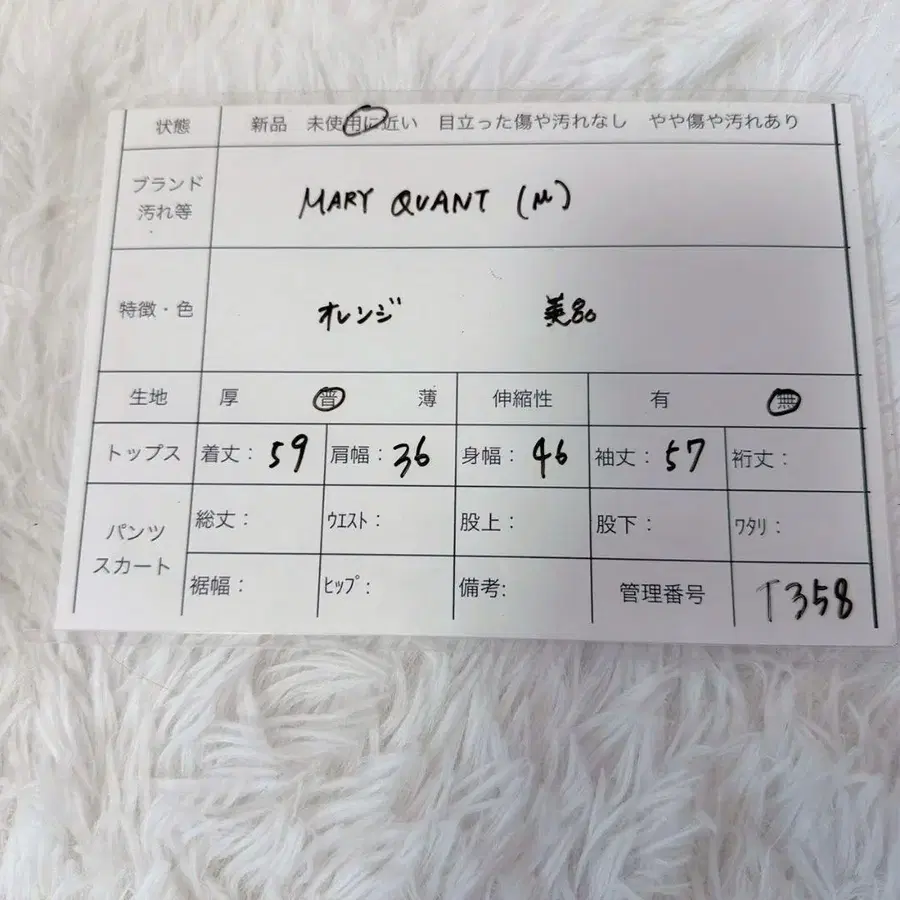 状態 新品 未使用に近い 目立った傷や汚れなし やや傷や汚れあり
ブランド MARY QUANT (M)
汚れ等
特徴・色 オレンジ 美品
生地 厚 普 薄 伸縮性 有 無
トップス 着丈: 59 肩幅: 36 身幅: 46 袖丈: 57 裄丈:
パンツ 総丈: ウエスト: 股上: 股下: ワタリ:
スカート 裾幅: ヒップ: 備考: 管理番号 T358